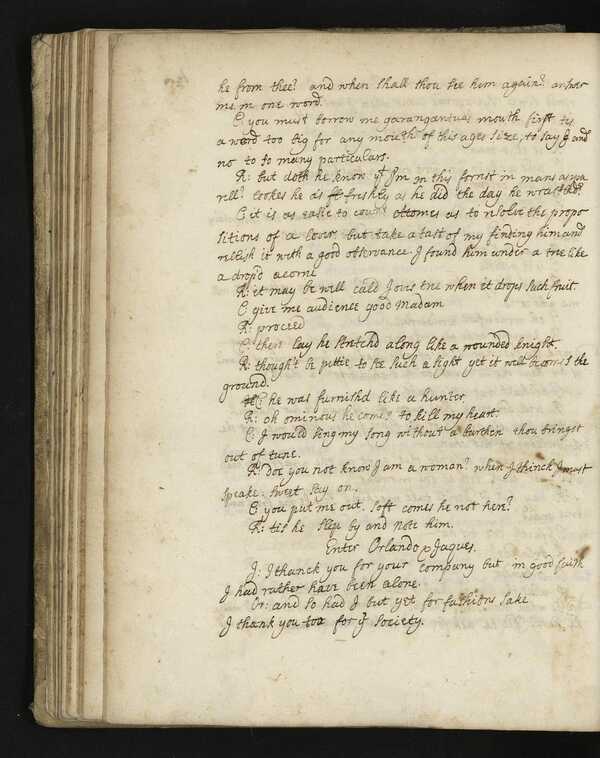 he from thee? and when shall thou see him again? answer
me in one word.
C. you must borrow me garangantuas mouth first tis
a word too big for any mouth of this ages size, to say I and
no to so many particulars.
R: but doth he know yt I'm in this forrest in mans appa
rell? lookes he as freshly as he did the day he wrastled?
C it is as easie to count attomes as to resolve the propo
sitions of a lover but take a tast of my finding him and
rellish it with a good observance. I found him under a tree like
a drop'd acorne
R: it may be well cald Joves tree when it drops such fruit
C give me audience good Madam
R: proceed
C: there lay he stretchd along like a wounded knight
R: though't be pittie to see such a sight yet it well becomes the
ground.
C: he was furnishd like a hunter
R: oh ominous he comes to kill my heart.
C: I would sing my song without a burthen thou bringst
out of tune.
R: doe you not know I am a woman? when I thinck I must
speake. sweet say on.
C you put me out. soft comes he not here?
R: tis he slip by and note him.
Enter Orlando & Jaques.
J: I thanck you for your company but in good faith
I had rather have been alone.
Or: and so had I but yet for fashions sake
I thank you too for yr society.